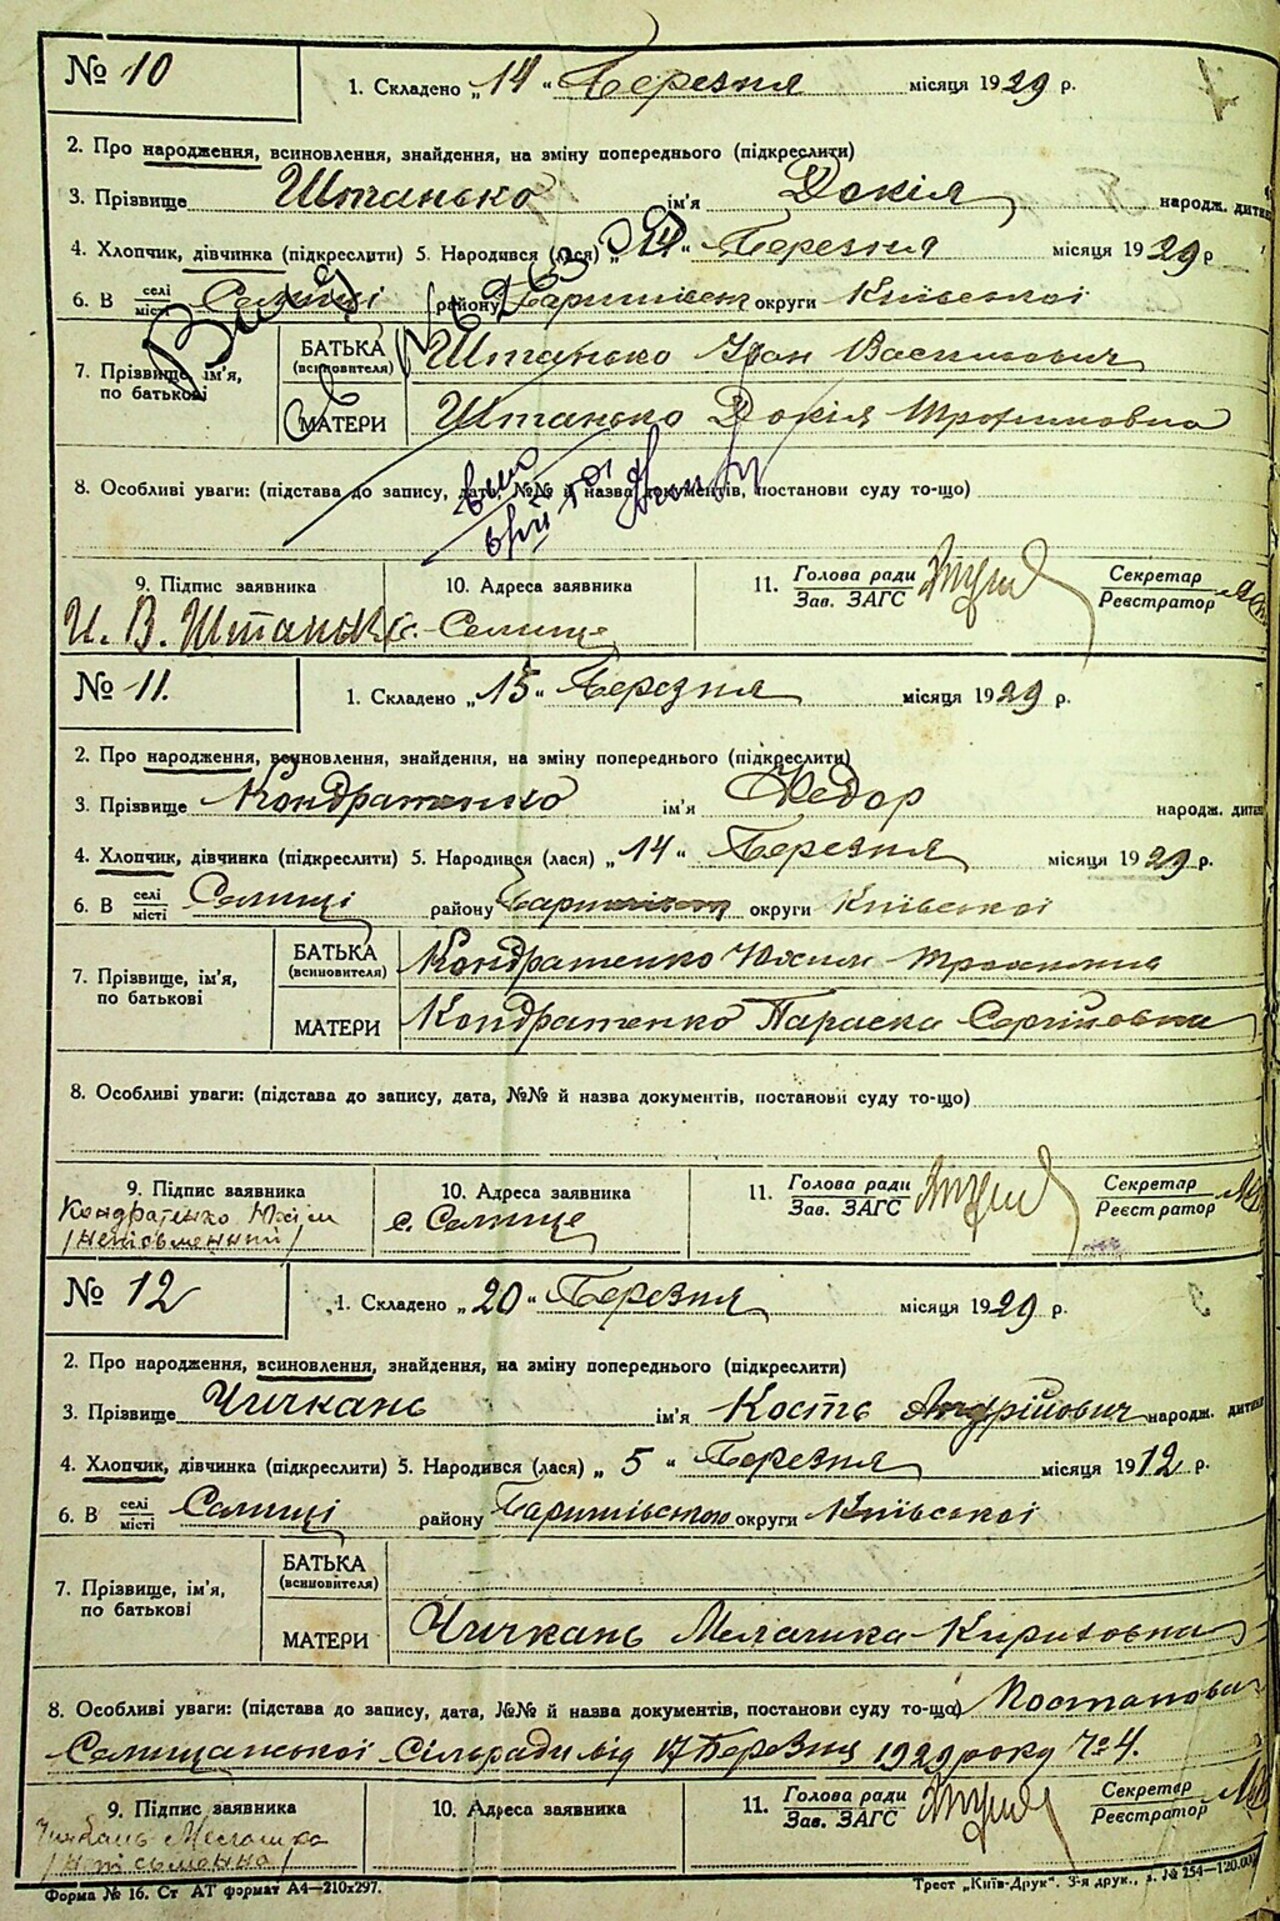 № 10
1. Складено „14“ Березня місяця 1929 р.
2. Про народження, всиновлення, знайдення, на зміну попереднього (підкреслити)
3. Прізвище Штанько ім'я Докія народж. дитини
4. Хлопчик, дівчинка (підкреслити) 5. Народився (лася) „14“ Березня місяця 1929 р
6. В селі місті Селищі району округи Київської
7. Прізвище, ім'я, по батькові
БАТЬКА (всиновителя) Штанько Іван Васильович
МАТЕРИ Штанько Докія Трохимовна
8. Особливі уваги: (підстава до запису, дата, №№ й назва документів, постанови суду то-що)
9. Підпис заявника
10. Адреса заявника
11. Голова ради Зав. ЗАГС
Секретар Реєстратор
И. В. Штанько
с. Селище
№ 11.
1. Складено „15“ Березня місяця 1929 р.
2. Про народження, всиновлення, знайдення, на зміну попереднього (підкреслити)
3. Прізвище Кондратенко ім'я Хведор народж. дитини
4. Хлопчик, дівчинка (підкреслити) 5. Народився (лася) „14“ Березня місяця 1929 р.
6. В селі місті Селищі району округи Київської
7. Прізвище, ім'я, по батькові
БАТЬКА (всиновителя) Кондратенко Юхим
МАТЕРИ Кондратенко Параска Сергійовна
8. Особливі уваги: (підстава до запису, дата, №№ й назва документів, постанови суду то-що)
9. Підпис заявника
10. Адреса заявника
11. Голова ради Зав. ЗАГС
Секретар Реєстратор
Кондратенко Юхим
/неписьменний/
с. Селище
№ 12
1. Складено „20“ Березня місяця 1929 р.
2. Про народження, всиновлення, знайдення, на зміну попереднього (підкреслити)
3. Прізвище Чичкань ім'я Кость Андрійович народж. дитини
4. Хлопчик, дівчинка (підкреслити) 5. Народився (лася) „5“ Березня місяця 1912 р.
6. В селі місті Селищі району Баришівського округи Київської
7. Прізвище, ім'я, по батькові
БАТЬКА (всиновителя)
МАТЕРИ Чичкань Мелашка Кириловна
8. Особливі уваги: (підстава до запису, дата, №№ й назва документів, постанови суду то-що) Постанова
Селищанської Сільради від 17 Березня 1929 року № 4.
9. Підпис заявника
10. Адреса заявника
11. Голова ради Зав. ЗАГС
Секретар Реєстратор
Чичкань Мелашка
/неписьменна/
Форма № 16. Ст АТ формат А4—210х297.
Трест „Київ-Друк“. 3-я друк., з. № 254—120.000